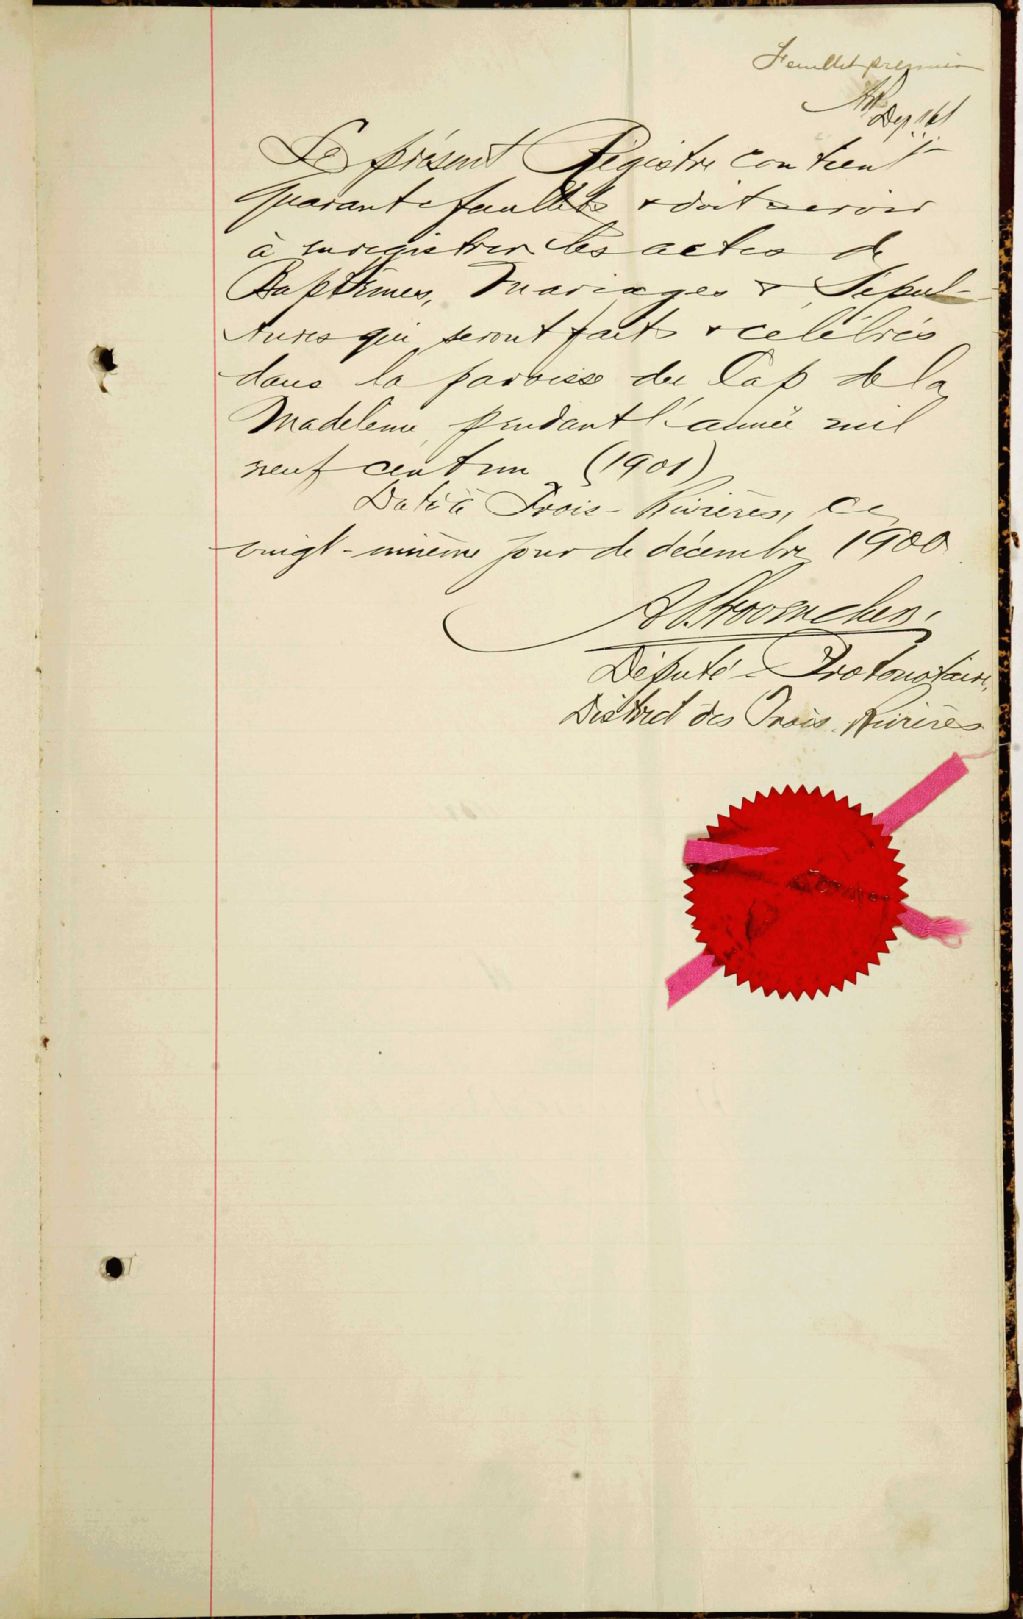 Feuillet premier
Dep
Le présent Régistre contient
quarante feuillets & doit servir
à enregistrer les actes de
Baptêmes, Mariages & Sépul-
tures qui seront faits & célébrés
dans la paroisse du Cap de la
Madeleine, pendant l'année mil
neuf cent un (1901)
Daté à Trois-Rivières, ce
vingt-unième jour de décembre 1900
Député-Protonotaire,
District des Trois-Rivières